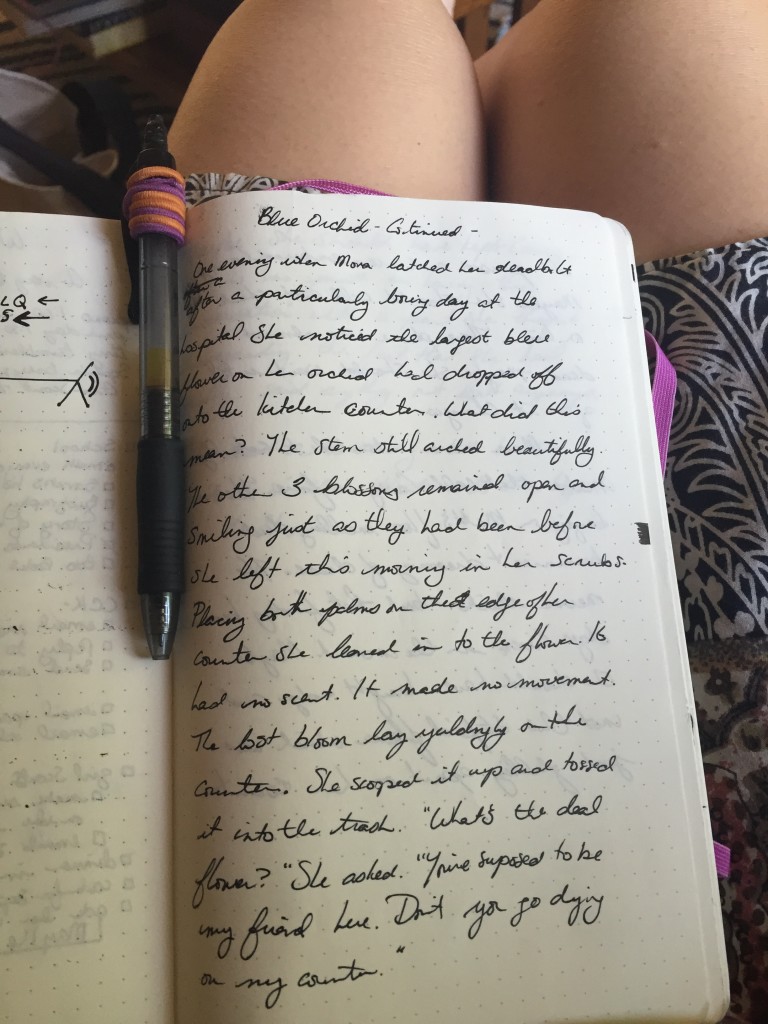 Blue Orchid - Cotinued -
One evening when Mona latched her deadbolt
after a particularly long day at the
hospital she noticed the largest blue
flower on her orchid had dropped off
onto the kitchen counter. What did this
mean? The stem still arched beautifully.
The other 3 blossoms remained open and
Smiling just as they had been before
She left this morning in her scrubs.
Placing both palms on the edge of her
counter she leaned in to the flower. It
had no scent. It made no movement.
The lost bloom lay on the
Counter. She scooped it up and tossed
it into the trash. "What's the deal
flower?" She asked. "You're supposed to be
my friend here. Don't you go dying
on my counter."